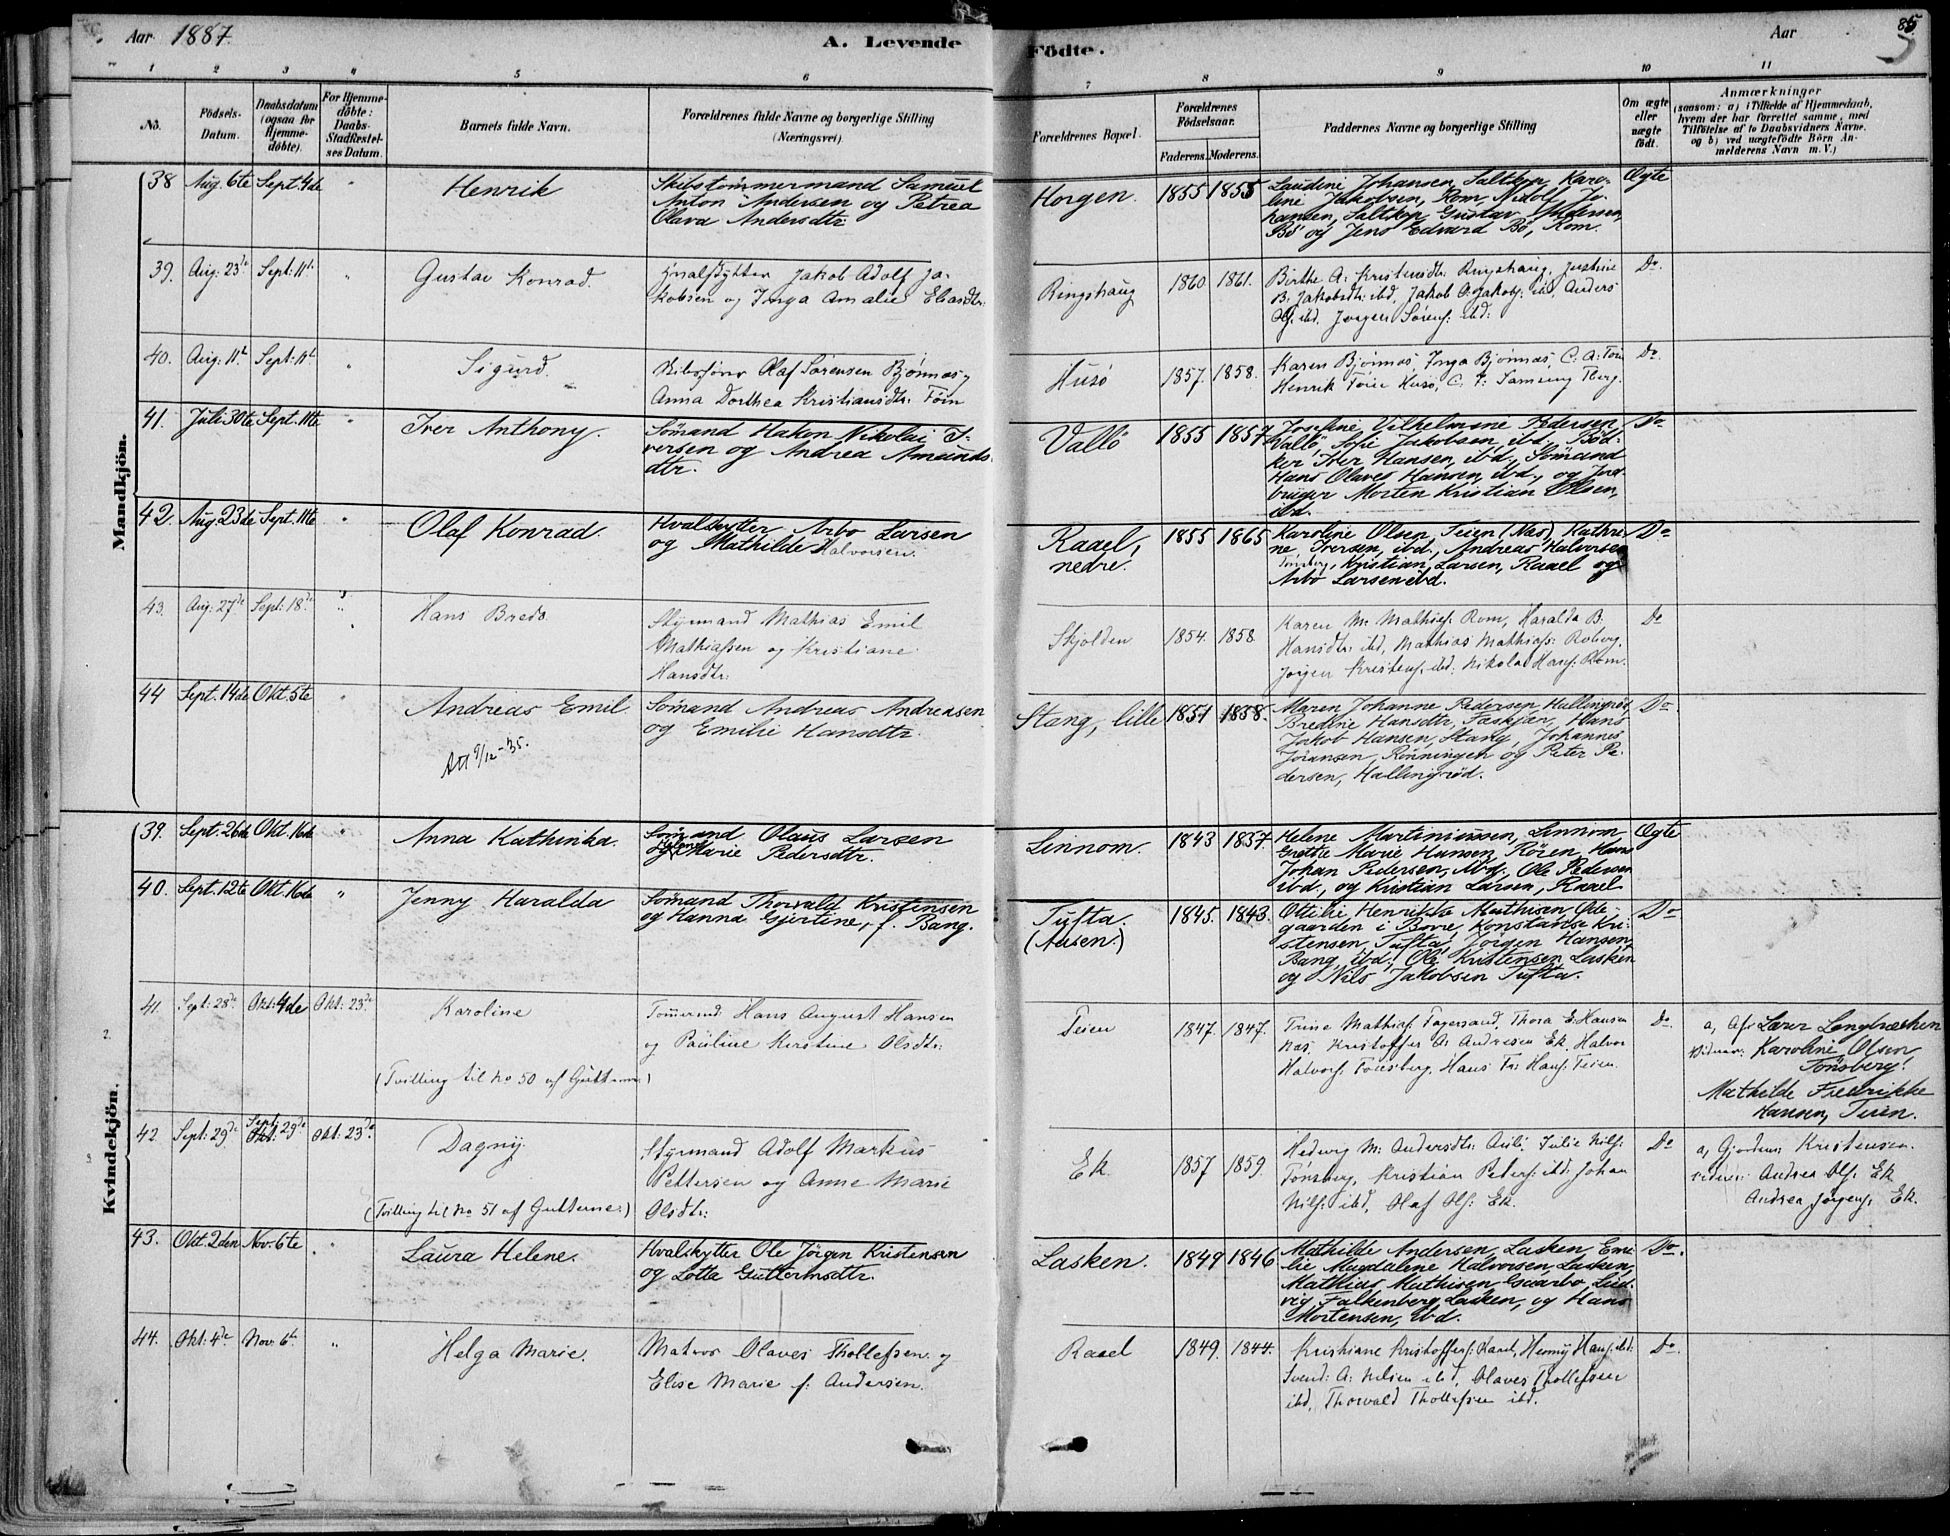 Aar 1887.
A. Levende
Födte.
Aar
85
1 2 3 4 5 6
7 8 9 10 11
No.
Födsels-
Datum.
Daabsdatum
(ogsaa for
Hjemme-
döbte).
For Hjemme-
döbte:
Daabs-
Stadfæstel-
ses Datum.
Barnets fulde Navn.
Forældrenes fulde Navne og borgerlige Stilling
(Næringsvei)
Forældrenes Bopæl.
Forældrenes
Födselsaar.
Faderens. Moderens.
Faddernes Navne og borgerlige Stilling
Om ægte
eller
uægte
födt.
Anmærkninger
(saasom: a) i Tilfælde af Hjemmedaab,
hvem der har forrettet samme, med
Tilföielse af to Daabsvidners Navne.
og b) ved uægtefödte Börn An-
melderens Navn m. V.)
Mandkjön.
38 Aug. 6te Sept. 4de " Henrik
Skibstømmermand Samuel
Anton Andersen og Petrea
Olava Andersdtr
Horgen. 1855 1855
Laudine Johansen, Saltkop, Karo-
line Jakobsen, Rom, Nidolf Jo-
hansen, Saltkop, Gustav Andersen,
Bö og Jens Edvard Bö, Rom.
Ægte
39. Aug: 23de Sept: 11te " Gustav Konrad.
Hvalskytter Jakob Adolf Ja-
kobsen og Inga Amalie Eliasdtr:
Ringshaug 1860. 1861.
Birthe A. Kristensdtr: Ringshaug, Justine
B. Jakobsdtr: ibd, Jakob A. Jakobs: ibd, Anders
Ols: ibd, Jørgen Sørens: ibd:
Do.
40. Aug: 11te Sept: 11te " Sigurd.
Skibsfører Olaf Sørensen Bjønnes og
Anna Dorthea Kristiansdtr: Føin
Husö 1857. 1858.
Karen Bjønnes, Inga Bjønnes, C. A. Føin
Henrik Føin Husø, C. F. Samsing Tberg.
Do.
41. Juli 30te Sept. 11te " Iver Anthony.
Sømand Hakon Nikolai I-
versen og Andrea Amunds-
dtr.
Vallö 1855 1857
Josefine Vilhelmine Pedersen,
Vallö, Sofie Jakobsen, ibd., Bød-
ker Iver Hansen, ibd., Sømand
Hans Olaves Hansen, ibd., og Jord-
bruger Morten Kristian Olsen,
ibd.
Do.
42. Aug. 23de Sept. 11te " Olaf Konrad.
Hvalskytter Arbo Larsen
og Mathilde Halvorsen.
Raael,
nedre. 1855 1865
Karoline Olsen, Teien (Næs), Kathri-
ne Iversen, ibd., Andreas Halvorsen
Tønsberg, Kristian Larsen, Raael og
Arbo Larsen ibd.
Do
43. Aug: 27de Sept: 18de " Hans Bredo.
Styrmand Mathias Emil
Mathiassen og Kristiane
Hansdtr:
Skjolden 1854. 1858
Karen M. Mathias: Rom, Haralda B.
Hansdtr: ibd, Mathias Mathiass: Roberg,
Jørgen Kristens: ibd: Nikolai Hans: Rom.
Do
44 Sept. 14de Okt. 5te " Andreas Emil
Att 9/12-35.
Sømand Andreas Andreasen
og Emilie Hansdtr.
Stang, lille 1851 1858.
Maren Johanne Pedersen Hallingrød,
Bredine Hansdtr, Faskjær, Hans
Jakob Hansen, Stang, Johannes
Jøransen, Rønningen og Peter Pe-
dersen, Hallingrød.
Do.
Kvindekjön.
39. Sept. 26de Okt. 16de " Anna Kathinka.
Sømand Olaus Larsen
og Helene Marie Pedersdtr.
Linnom. 1843 1857
Helene Martiniussen, Linnom,
Grethe Marie Hansen, Rören, Hans
Johan Pedersen, ibd., Ole Pedersen
ibd., og Kristian Larsen, Raael
Ægte
40. Sept. 12te Okt. 16de " Jenny Haralda
Sømand Thorvald Kristensen
og Hanna Gjertine, f. Bang.
Tufta.
(Ausen.) 1845. 1843.
Ottilie Henrikke Mathisen, Øde-
gaarden i Borre, Konstanse Kri-
stensen, Tufta, Jörgen Hansen,
Bang, ibd., Ole Kristensen Lasken
og Nils Jakobsen Tufta.
Do
41. Sept: 28de Okt: 4de Okt: 23de. Karoline
(Tvilling til no 50 af Guttene)
Tømmermd Hans August Hansen
og Pauline Kirstine Olsdtr:
Teien 1847. 1847.
Trine Mathias: Fagersand, Thora E. Hansen
Næs, Kristoffer A. Andresen Ek, Halvor
Halvors: Tønsberg, Hans Fr: Hans: Teien.
Do
a, Af Lærer Langbrækken
Vidner: Karoline Olsen,
Tønsberg.
Mathilde Fredrikke
Hansen, Teien.
42 Sept: 29de Sept: 29de Okt: 23de. Dagny
(Tvilling til no 51 af Guttene)
Styrmand Adolf Markus
Pettersen og Anne Marie
Olsdtr:
Ek 1857 1859.
Hedevig M: Andersdtr: Auli, Julie Nils:
Tønsberg, Kristian Peters: ibd: Johan
Nils: ibd, Olaf Ols: Ek.
Do
a, Gjordem: Kristensen.
vidner: Andrea Ols: Ek
Andrea Jørgens: Ek.
43. Okt. 2den Nov. 6te " Laura Helene.
Hvalskytter Ole Jörgen Kristensen
og Lotta Guttormsdtr.
Lasken. 1849 1846
Mathilde Andersen, Lasken, Emi-
lie Magdalene Halvorsen, Lasken,
Mathias Mathisen, Lud-
vig Falkenberg, Lasken, og Hans
Mortensen, ibd.
Do.
44. Okt: 4de Nov. 6te " Helga Marie.
Matros Olaves Thollefsen og
Elise Marie f: Andersen.
Raael 1849. 1844.
Kristiane Kristoffers: Raael, Henny Hans: ibd:
Svend: A. Nilsen ibd, Olaves Thollefsen
ibd, Thorvald Thollefsen ibd.
Do.